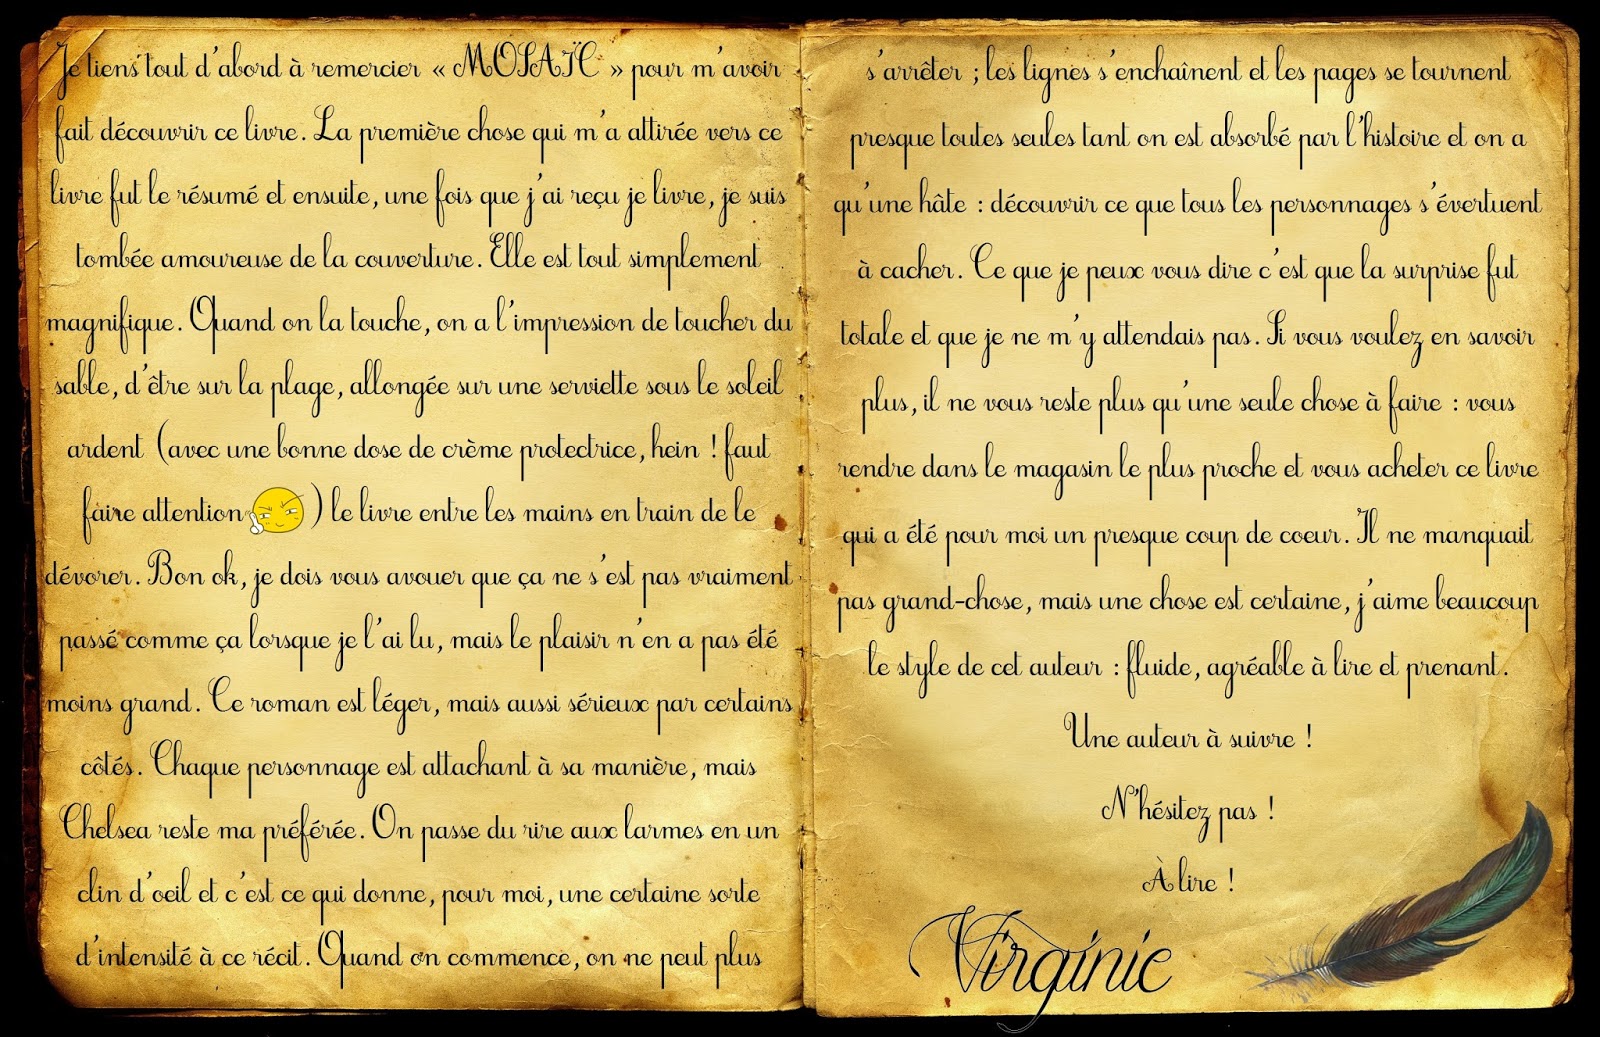 Je tiens tout d'abord à remercier « MOSAÏC » pour m'avoir
fait découvrir ce livre. La première chose qui m'a attirée vers ce
livre fut le résumé et ensuite, une fois que j'ai reçu je livre, je suis
tombée amoureuse de la couverture. Elle est tout simplement
magnifique. Quand on la touche, on a l'impression de toucher du
sable, d'être sur la plage, allongée sur une serviette sous le soleil
ardent (avec une bonne dose de crème protectrice, hein ! faut
faire attention ) le livre entre les mains en train de le
dévorer. Bon ok, je dois vous avouer que ça ne s'est pas vraiment
passé comme ça lorsque je l'ai lu, mais le plaisir n'en a pas été
moins grand. Ce roman est léger, mais aussi sérieux par certains
côtés. Chaque personnage est attachant à sa manière, mais
Chelsea reste ma préférée. On passe du rire aux larmes en un
clin d'oeil et c'est ce qui donne, pour moi, une certaine sorte
d'intensité à ce récit. Quand on commence, on ne peut plus
s'arrêter ; les lignes s'enchaînent et les pages se tournent
presque toutes seules tant on est absorbé par l'histoire et on a
qu'une hâte : découvrir ce que tous les personnages s'évertuent
à cacher. Ce que je peux vous dire c'est que la surprise fut
totale et que je ne m'y attendais pas. Si vous voulez en savoir
plus, il ne vous reste plus qu'une seule chose à faire : vous
rendre dans le magasin le plus proche et vous acheter ce livre
qui a été pour moi un presque coup de coeur. Il ne manquait
pas grand-chose, mais une chose est certaine, j'aime beaucoup
le style de cet auteur : fluide, agréable à lire et prenant.
Une auteur à suivre !
N'hésitez pas !
À lire !
Virginie